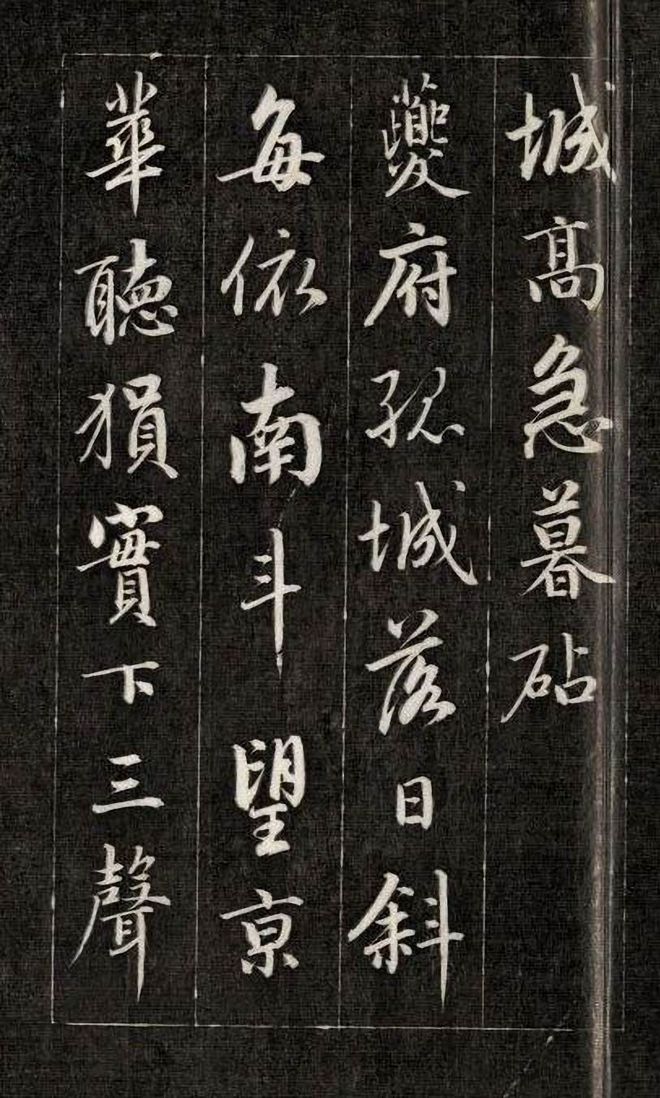 城髙急暮砧
夔府孤城落日斜
每依南斗望京
華聽猿實下三聲